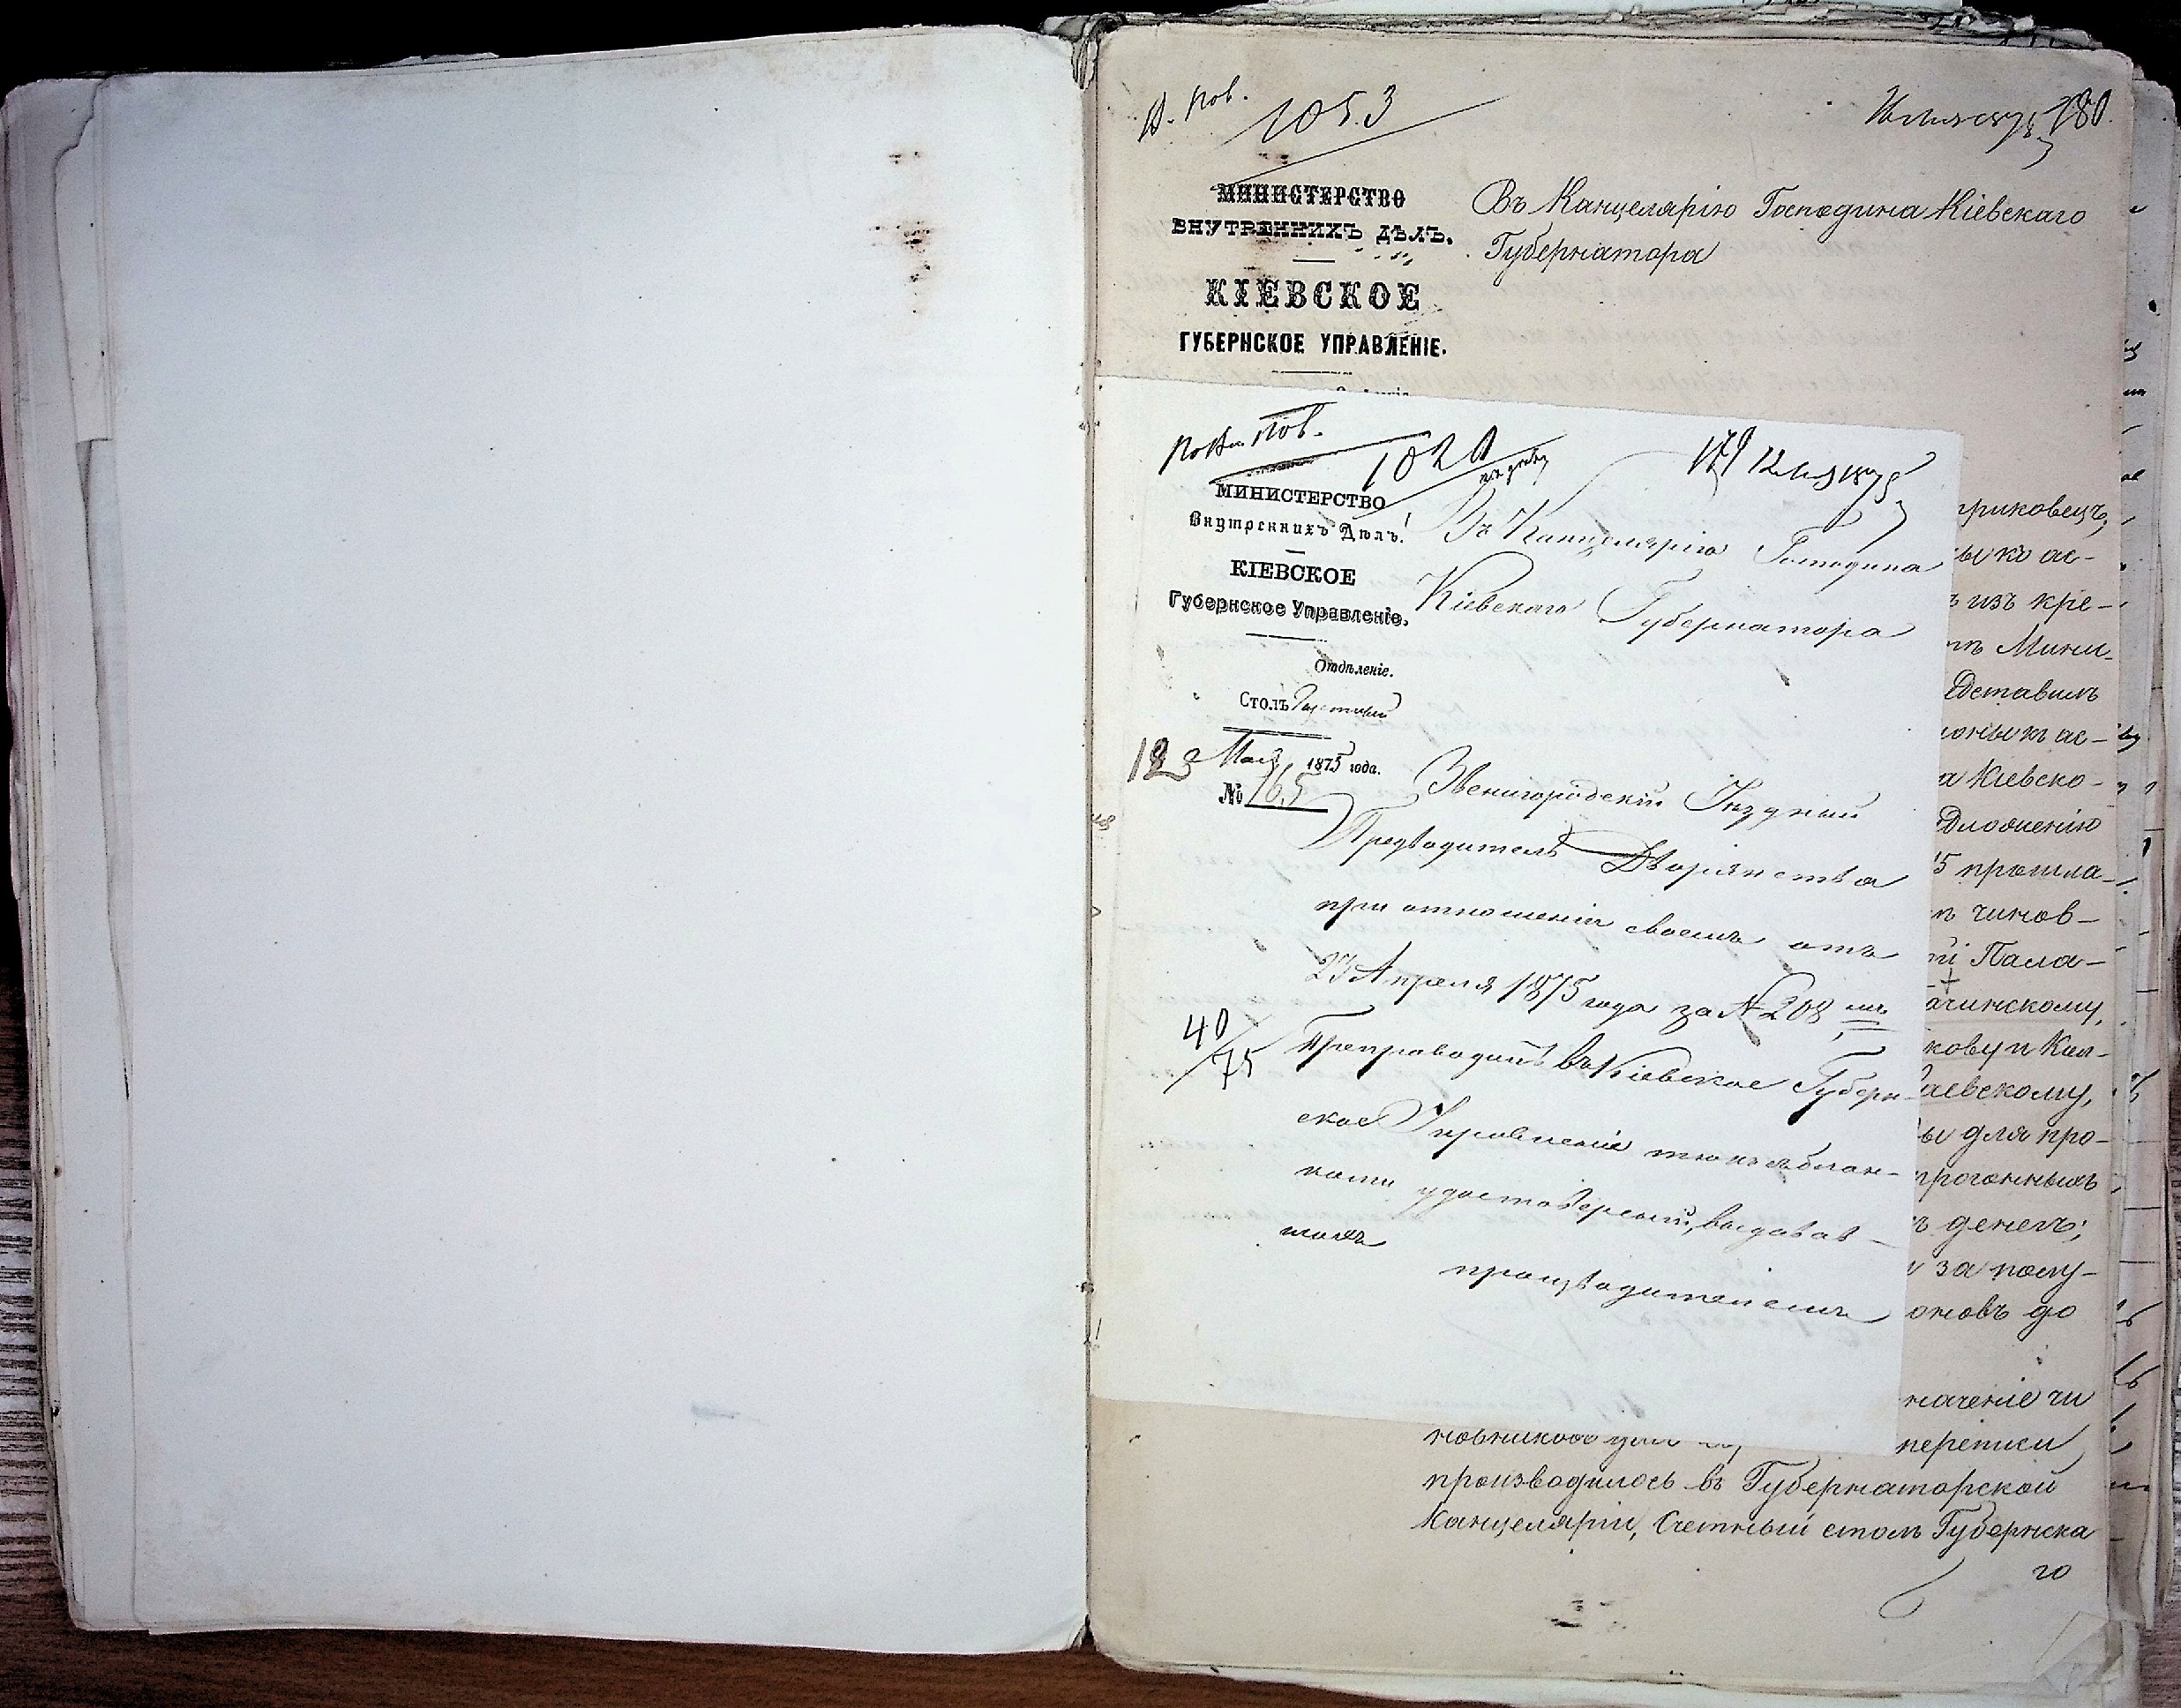 1053
180.
МИНИСТЕРСТВО
ВНУТРЕННИХЪ ДѢЛЪ.
КІЕВСКОЕ
ГУБЕРНСКОЕ УПРАВЛЕНІЕ.
Въ Канцелярію Господина Кіевскаго
Губернатора
1020
179
МИНИСТЕРСТВО
Внутреннихъ Дѣлъ.
КІЕВСКОЕ
Губернское Управленіе.
Отдѣленіе.
Столъ
Мая 1875 года.
№ 165
Въ Канцелярію Господина
Кіевскаго Губернатора
Звенигородскій Уѣздный
Предводитель Дворянства
при отношеніи своемъ отъ
23 Апрѣля 1875 года за № 208
40/75
Препроводилъ въ Кіевское Губерн-
ское Управленіе
удостовереній, выдавав-
шихъ
производителемъ
приковецъ,
ы къ ас-
ъ изъ кре-
тъ Мини-
едставилъ
а Кіевско-
дложенію
5 прошла-
ъ чинов-
й Пала-
ачинскому,
кову и Кал-
аевскому,
ы для про-
прогонныхъ
ъ денегъ;
и за полу-
оновъ до
начение чи
новниковъ для переписи
производилось въ Губернаторской
Канцеляріи, Счетный столъ Губернска
го